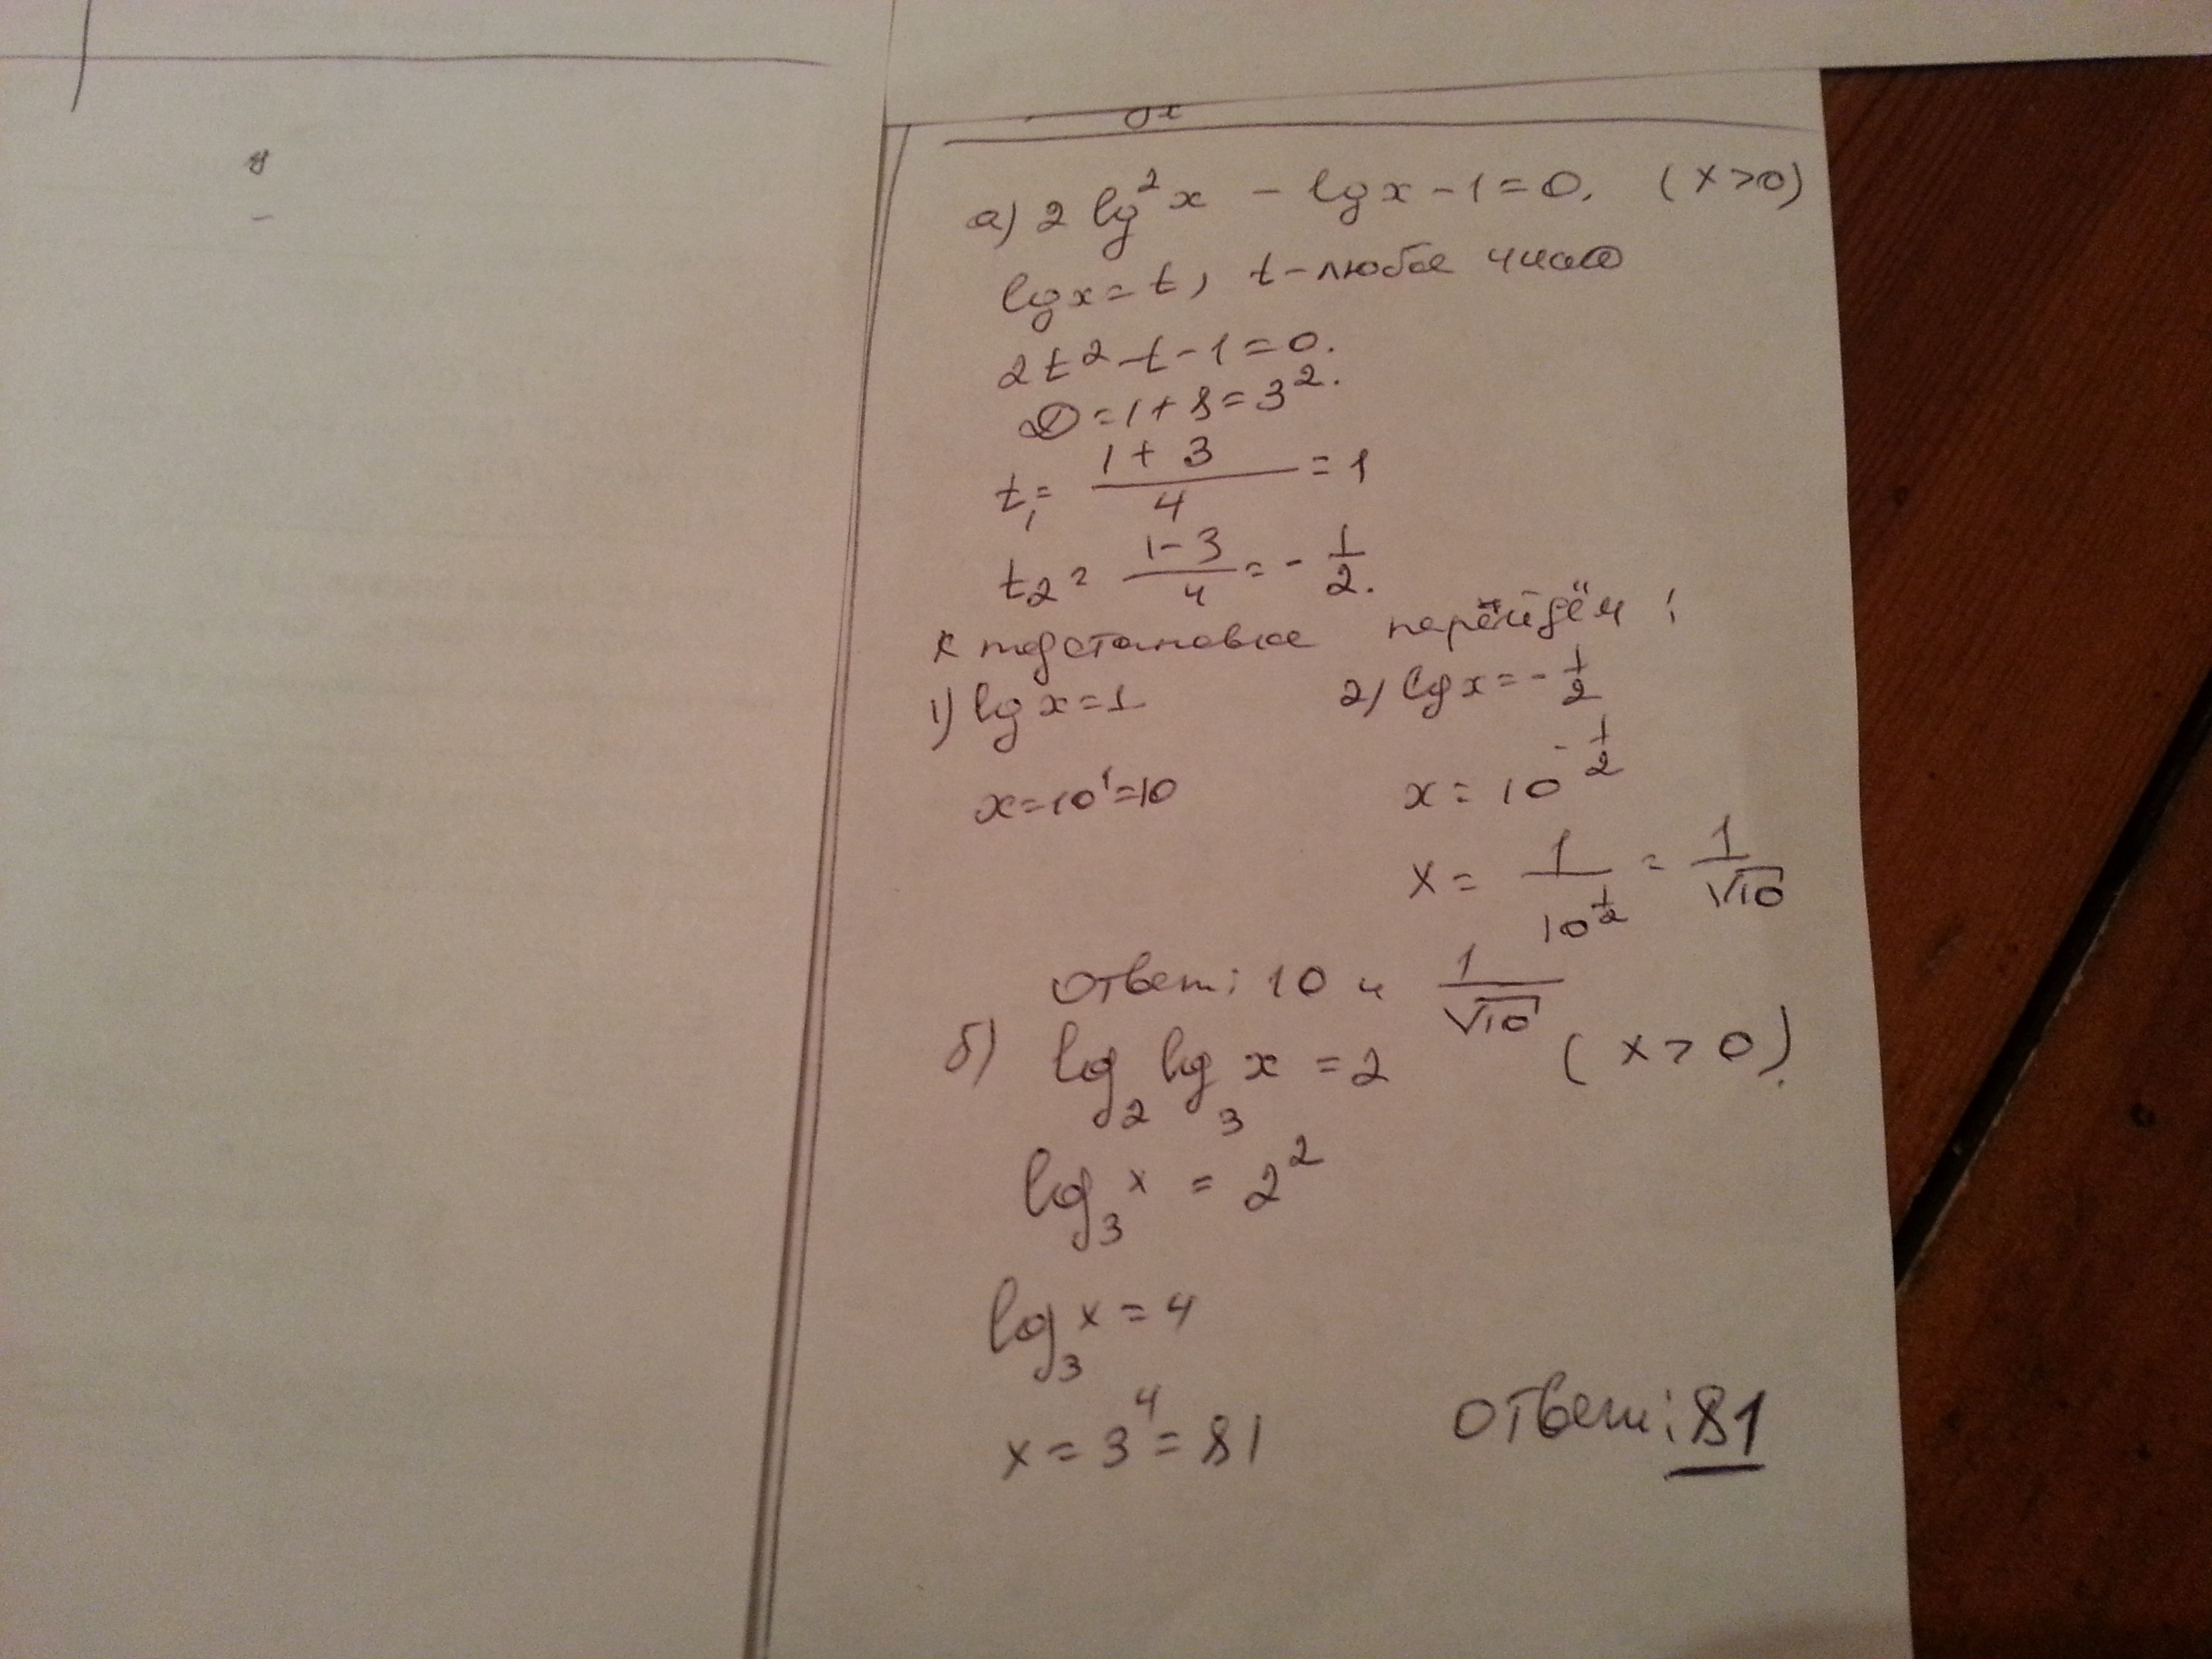 а) 2 lg²x - lgx - 1 = 0. (x>0)
lgx = t, t - любое число
2t² - t - 1 = 0.
D = 1 + 8 = 3².
t₁ = (1 + 3)/4 = 1
t₂ = (1 - 3)/4 = - 1/2.
К подстановке перейдём:
1) lg x = 1 2) lg x = - 1/2
x = 10¹ = 10 x = 10^(-1/2)
x = 1/10^(1/2) = 1/√10
Ответ: 10 и 1/√10
б) log₂ log₃ x = 2 (x > 0).
log₃ x = 2²
log₃ x = 4
x = 3⁴ = 81 Ответ: 81